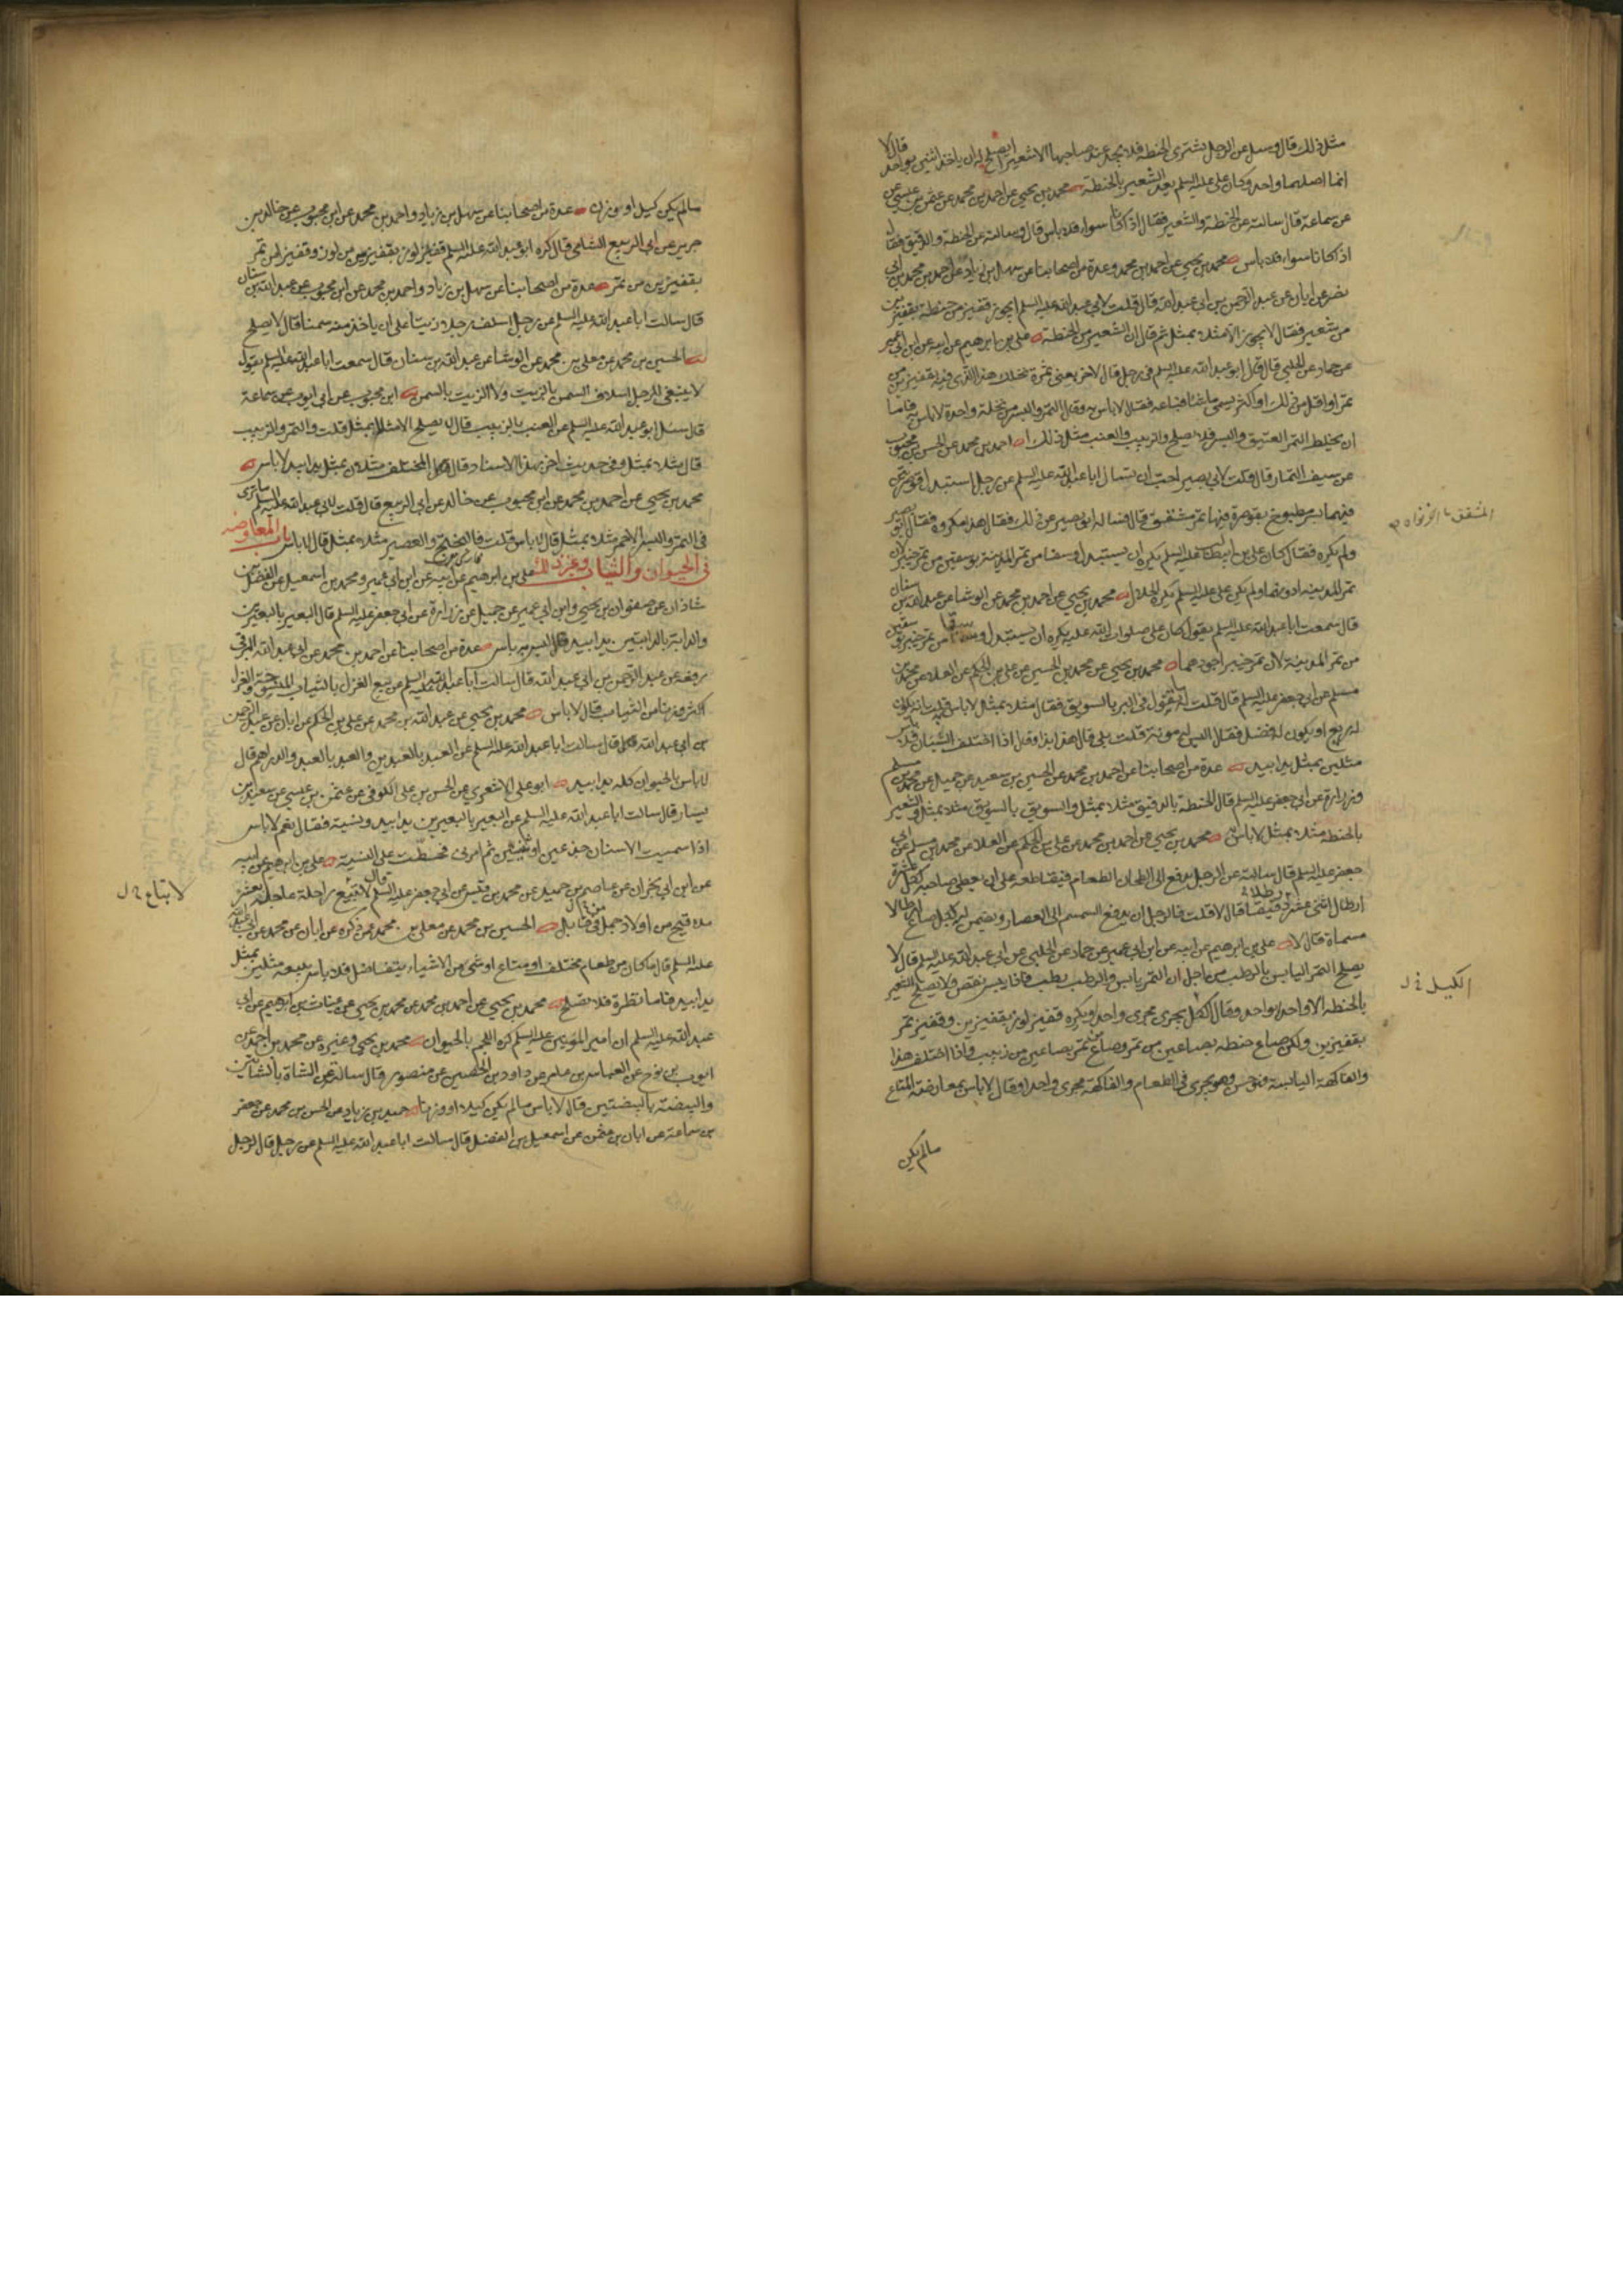 مثل ذلك قال وسئل عن الرجل يشترى الحنطة فلا يجد عند صاحبها الا شعيرا ايصلح له ان ياخذ اثنين بواحد قال لا
انما اصلهما واحد وكان على عليه السلم يعد الشعير بالحنطة محمد بن يحيى عن احمد بن محمد عن عثمن بن عيسى عن
عن سماعة قال سالته عن الحنطة والشعير فقال اذا كانا سواء فلا باس قال وسالته عن الحنطة والدقيق فقال
اذا كانا سواء فلا باس محمد بن يحيى عن احمد بن محمد وعدة من اصحابنا عن سهل بن زياد عن احمد بن محمد بن ابى
نصر عن ابان عن عبد الرحمن بن ابى عبد الله قال قلت لابى عبد الله عليه السلم ايجوز قفيز من حنطة بقفيزين
من شعير فقال لا يجوز الا مثلا بمثل ثم قال ان الشعير من الحنطة على بن ابرهيم عن ابيه عن ابن ابى عمير
عن حماد عن الحلبى قال قال ابو عبد الله عليه السلم فى رجل قال لاخر بعنى ثمرة نخلك هذا الذى فيه بقفيزين من
تمر او اقل من ذلك او اكثر يسمى ما شاء فباعه فقال لا باس به وقال التمر والبسر من نخلة واحدة لا باس به فاما
ان يخلط التمر العتيق والبسر فلا يصلح والزبيب والعنب مثل ذلك احمد بن محمد عن الحسن بن محبوب
عن سيف التمار قال قلت لابى بصير احب ان تسال ابا عبد الله عليه السلم عن رجل استبدل قوصرتين
فيهما بسر مطبوخ بقوصرة فيها تمر مشقق قال فساله ابو بصير عن ذلك فقال هذا مكروه فقال ابو بصير
ولم يكره فقال كان على بن ابيطالب عليه السلم يكره ان يستبدل وسقا من تمر المدينة بوسقين من تمر خيبر لان
تمر المدينة ادونهما ولم يكن على عليه السلم يكره الحلال محمد بن يحيى عن احمد بن محمد عن الوشا عن عبد الله بن سنان
قال سمعت ابا عبد الله عليه السلم يقول كان على صلوات الله عليه يكره ان يستبدل وسقا من تمر خيبر بوسقين
من تمر المدينة لان تمر خيبر اجودهما محمد بن يحيى عن محمد بن الحسين عن على بن الحكم عن العلاء عن محمد بن
مسلم عن ابى جعفر عليه السلم قال قلت له ما تقول فى البر بالسويق فقال مثلا بمثل لا باس قلت انه يكون
له ريع او يكون له فضل فقال اليس له مؤنة قلت بلى قال هذا بذا وقال اذا اختلف الشيئان فلا باس
مثلين بمثل يدا بيد عدة من اصحابنا عن احمد بن محمد عن الحسين بن سعيد عن جميل عن محمد بن مسلم
وزرارة عن ابى جعفر عليه السلم قال الحنطة بالدقيق مثلا بمثل والسويق بالسويق مثلا بمثل والشعير
بالحنطة مثلا بمثل لا باس محمد بن يحيى عن احمد بن محمد عن على بن الحكم عن العلاء عن محمد بن مسلم عن ابى
جعفر عليه السلم قال سالته عن الرجل يدفع الى الطحان الطعام فيقاطعه على ان يعطى صاحبه لكل عشرة
ارطال اثنى عشر رطلا دقيقا قال لا قلت فالرجل يدفع السمسم الى العصار ويضمن له لكل صاع ارطالا
مسماة قال لا على بن ابرهيم عن ابيه عن ابن ابى عمير عن حماد عن الحلبى عن ابى عبد الله عليه السلم قال لا
يصلح التمر اليابس بالرطب من اجل ان التمر يابس والرطب رطب فاذا يبس نقص ولا يصلح الشعير
بالحنطة الا واحدا بواحد وقال الكيل يجرى مجرى واحدا ويكره قفيز لوز بقفيزين وقفيز تمر
بقفيزين ولكن صاع حنطة بصاعين من تمر وصاع تمر بصاعين من زبيب واذا اختلف هذا
والفاكهة اليابسة فهو حسن وهو يجرى فى الطعام والفاكهة مجرى واحدا وقال لا باس بمعاوضة المتاع
ما لم يكن
الكيل خ ل
ما لم يكن كيل او وزن عدة من اصحابنا عن سهل بن زياد واحمد بن محمد عن ابن محبوب عن خالد بن
جرير عن ابى الربيع الشامى قال كره ابو عبد الله عليه السلم قفيز لوز بقفيزين من لوز وقفيز من تمر
بقفيزين من تمر عدة من اصحابنا عن سهل بن زياد واحمد بن محمد عن ابن محبوب عن عبد الله بن سنان
قال سالت ابا عبد الله عليه السلم عن رجل اسلف رجلا زيتا على ان ياخذ منه سمنا قال لا يصلح
الحسين بن محمد عن معلى بن محمد عن الوشا عن عبد الله بن سنان قال سمعت ابا عبد الله عليه السلم يقول
لا ينبغى للرجل اسلاف السمن بالزيت ولا الزيت بالسمن ابن محبوب عن ابى ايوب عن سماعة
قال سئل ابو عبد الله عليه السلم عن العنب بالزبيب قال لا يصلح الا مثلا بمثل قلت والتمر والزبيب
قال مثلا بمثل وفى حديث اخر بهذا الاسناد قال المختلف مثلان بمثل يدا بيد لا باس
محمد بن يحيى عن احمد بن محمد عن ابن محبوب عن خالد عن ابى الربيع قال قلت لابى عبد الله عليه السلم ما ترى
فى التمر والبسر الاحمر مثلا بمثل قال لا باس قلت فالبختج والعصير مثلا بمثل قال لا باس باب المعاوضة
فى الحيوان والثياب وغير ذلك على بن ابرهيم عن ابيه عن ابن ابى عمير ومحمد بن اسمعيل عن الفضل بن
شاذان عن صفوان بن يحيى وابن ابى عمير عن جميل عن زرارة عن ابى جعفر عليه السلم قال البعير بالبعيرين
والدابة بالدابتين يدا بيد ليس به باس عدة من اصحابنا عن احمد بن محمد عن ابى عبد الله البرقى
رفعه عن عبد الرحمن بن ابى عبد الله قال سالت ابا عبد الله عليه السلم عن بيع الغزل بالثياب المبسوطة والغزل
اكثر وزنا من الثياب قال لا باس محمد بن يحيى عن عبد الله بن محمد عن على بن الحكم عن ابان عن عبد الرحمن
بن ابى عبد الله قال سالت ابا عبد الله عليه السلم عن العبد بالعبدين والعبد بالعبد والدراهم قال
لا باس بالحيوان كله يدا بيد ابو على الاشعرى عن الحسن بن على الكوفى عن عثمن بن عيسى عن سعيد بن
يسار قال سالت ابا عبد الله عليه السلم عن البعير بالبعيرين يدا بيد ونسية فقال نعم لا باس
اذا سميت الاسنان جذعين او ثنيين ثم امرنى فخططت على النسية على بن ابرهيم عن ابيه
عن ابن ابى نجران عن عاصم بن حميد عن محمد بن قيس عن ابى جعفر عليه السلم قال لا تبيع راحلة عاجلة بعشرة
ملاقيح من اولاد جمل فى قابل الحسين بن محمد عن معلى بن محمد عمن ذكره عن ابان عن محمد عن ابى عبد الله
عليه السلم قال ما كان من طعام مختلف او متاع او شئ من الاشياء يتفاضل فلا باس ببيعه مثلين بمثل
يدا بيد فاما نظرة فلا تصلح محمد بن يحيى عن احمد بن محمد عن محمد بن يحيى عن غياث بن ابرهيم عن ابى
عبد الله عليه السلم ان امير المؤمنين عليه السلم كره اللحم بالحيوان محمد بن يحيى وغيره عن محمد بن احمد عن
ايوب بن نوح عن العباس بن عامر عن داود بن الحصين عن منصور قال سالته عن الشاة بالشاتين
والبيضة بالبيضتين قال لا باس ما لم يكن كيلا او وزنا حميد بن زياد عن الحسن بن محمد عن جعفر
بن سماعة عن ابان بن عثمن عن اسمعيل بن الفضل قال سالت ابا عبد الله عليه السلم عن رجل قال لرجل
لا تبتاع خ ل